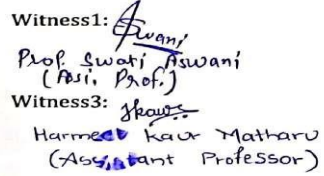 Witness1: Aswani
Prof. Swati Aswani
(Assi. Prof.)
Witness3: Hkaur
Harmeet Kaur Matharu
(Assistant Professor)